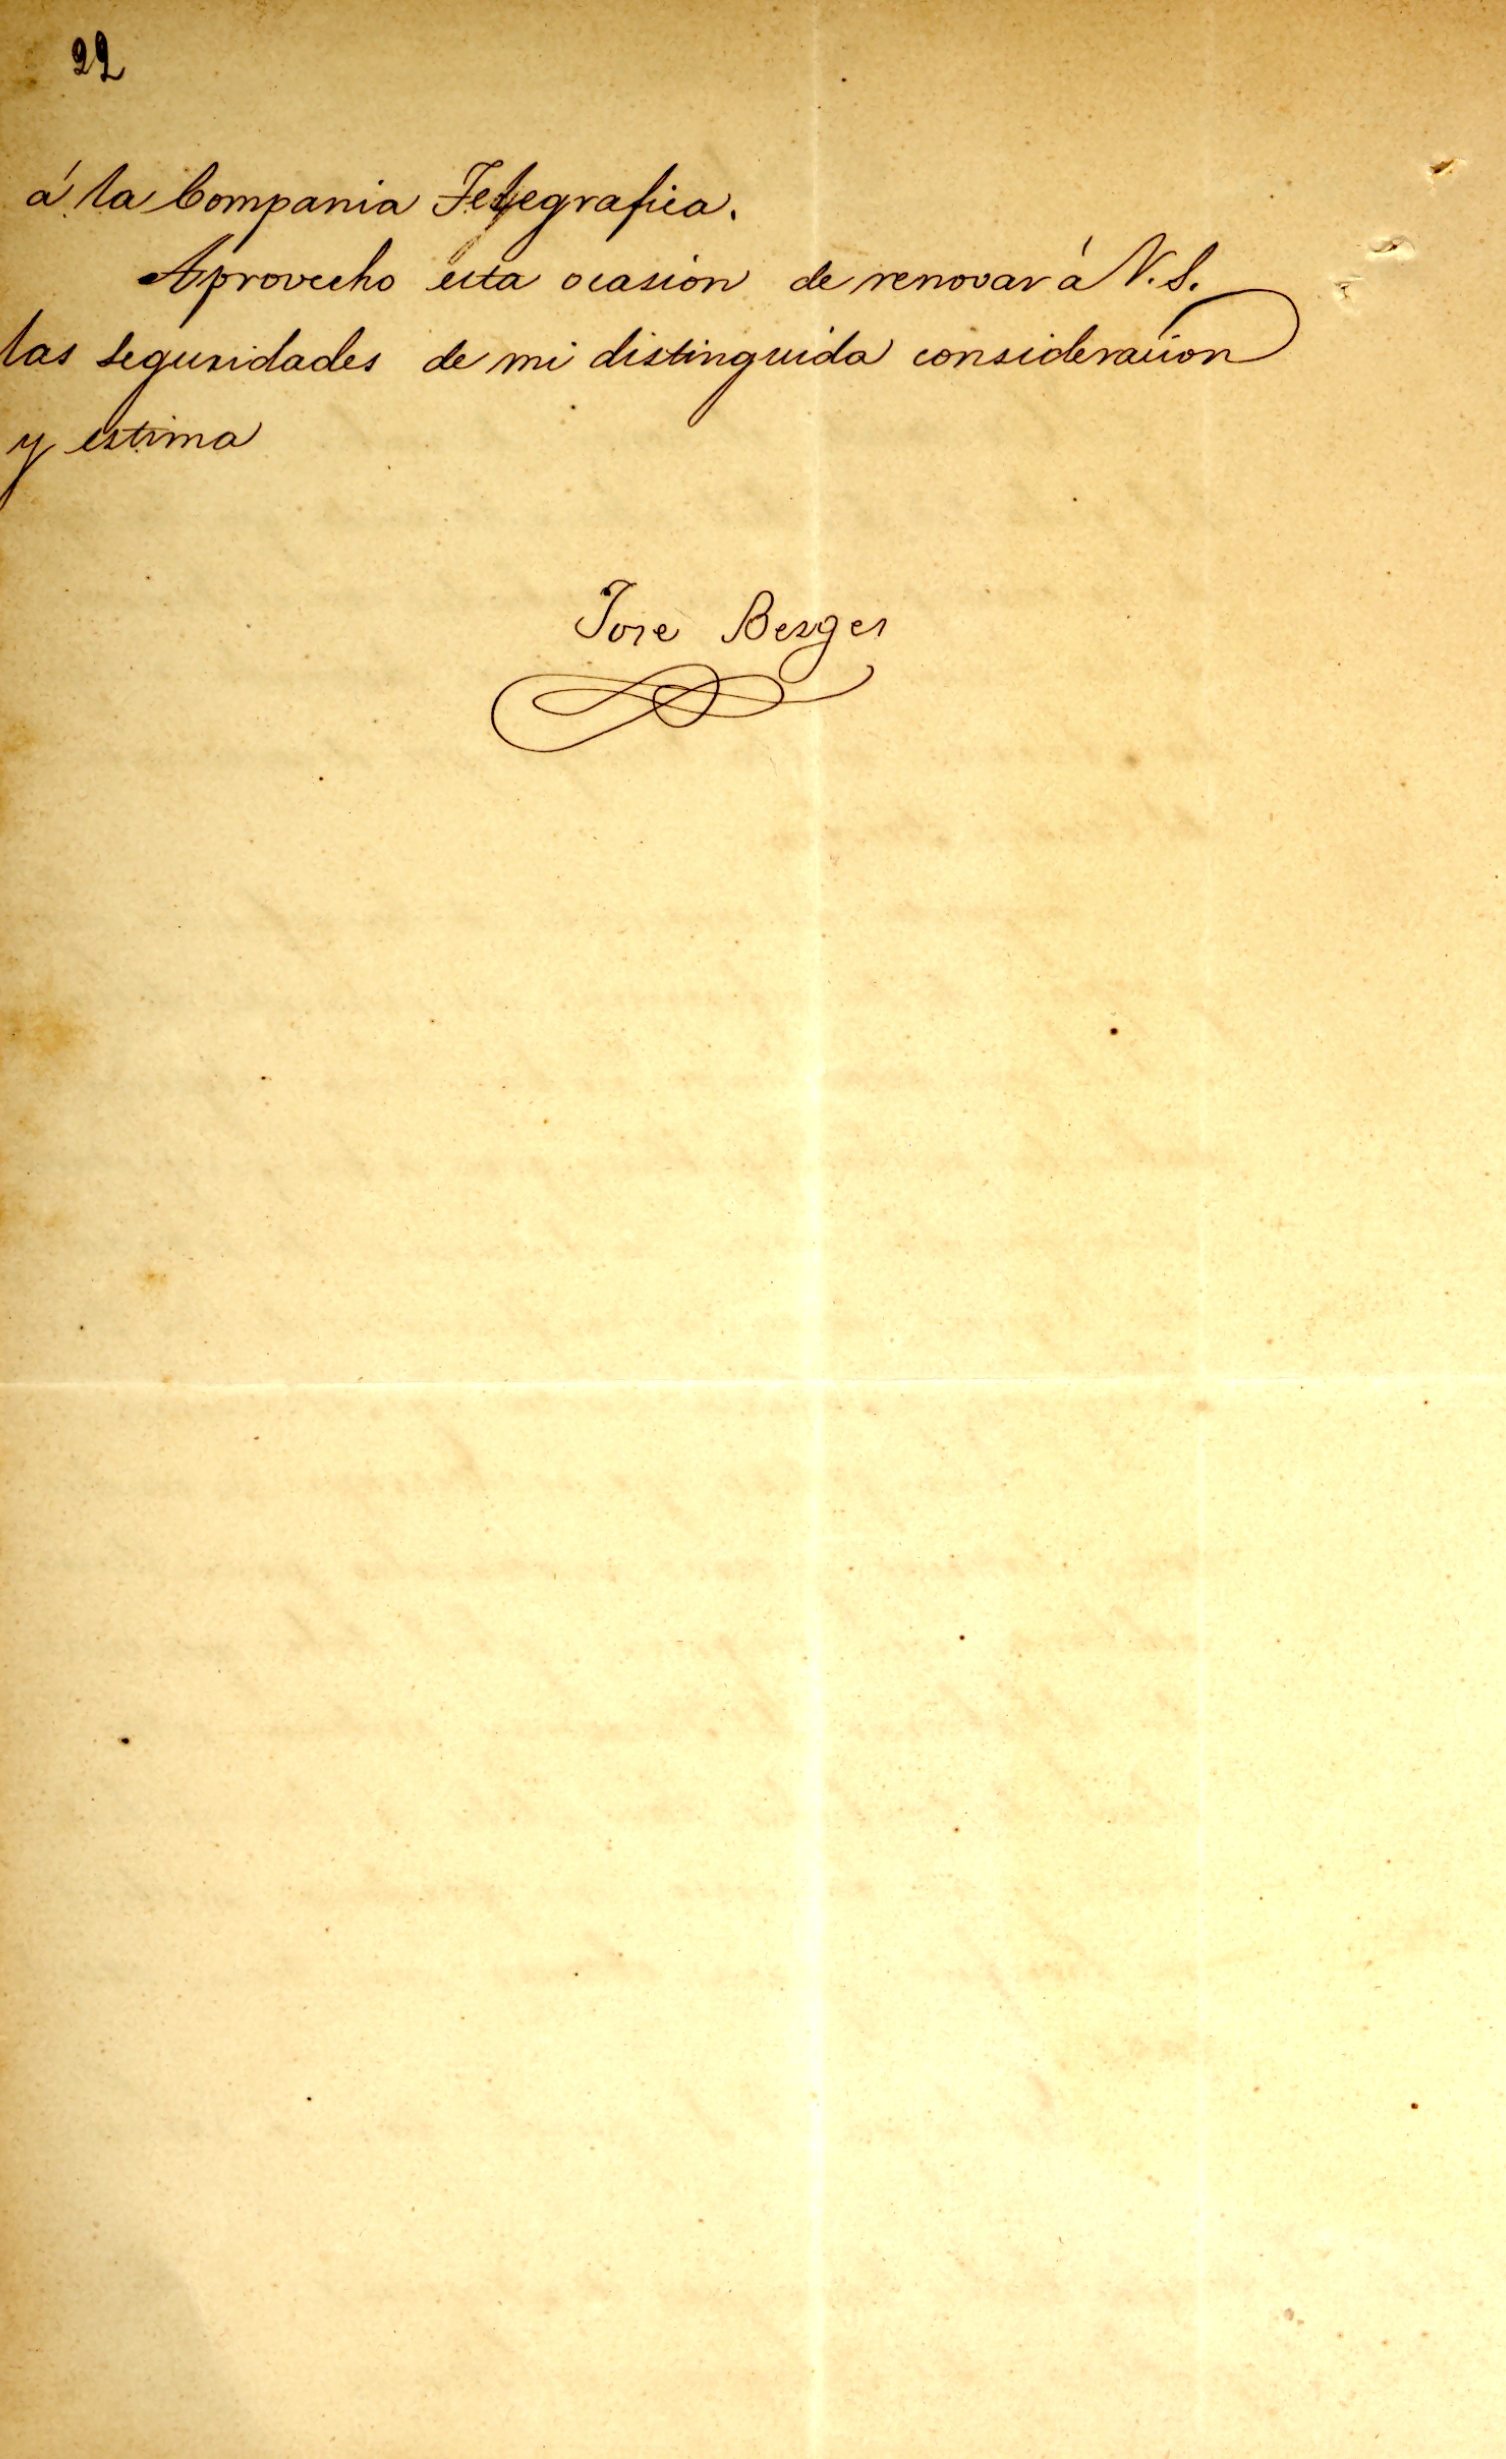 22
á la Compania Telegrafica.
Aprovecho esta ocasion de renovar á V.S.
las seguridades de mi distinguida consideracion
y estima
Jose Berges